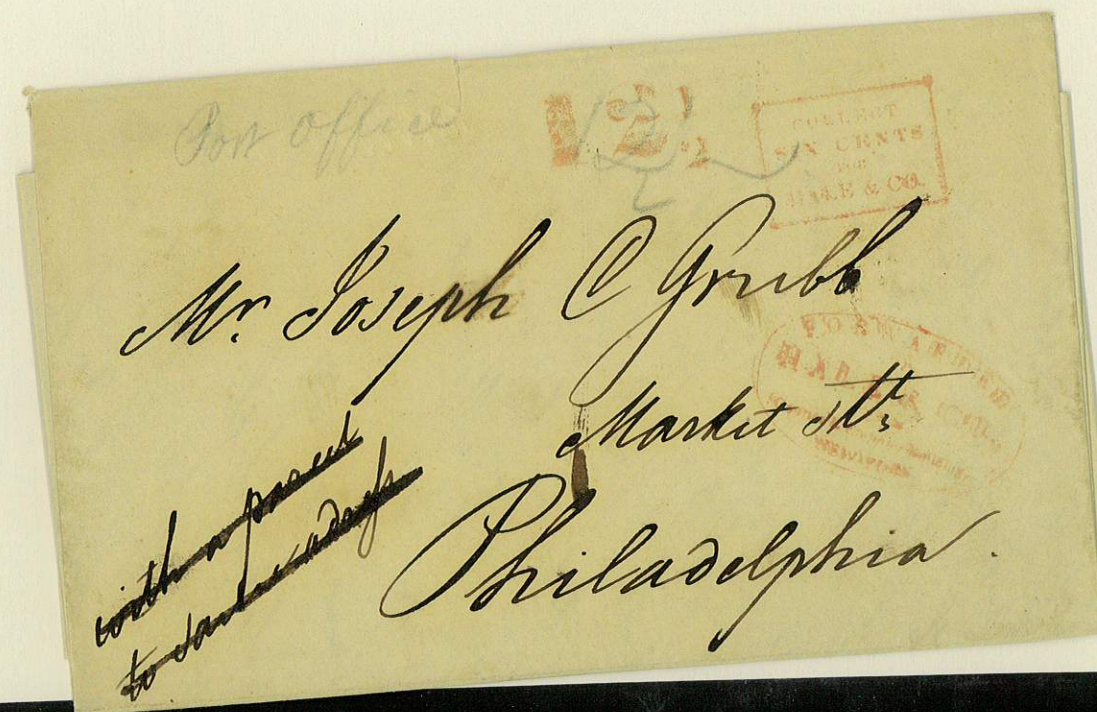 Post Office
12½
COLLECT
SIX CENTS
FOR
HALE & CO.
Mr. Joseph C Grubb
FORWARDED
Market St
Philadelphia
with a parcel
to same